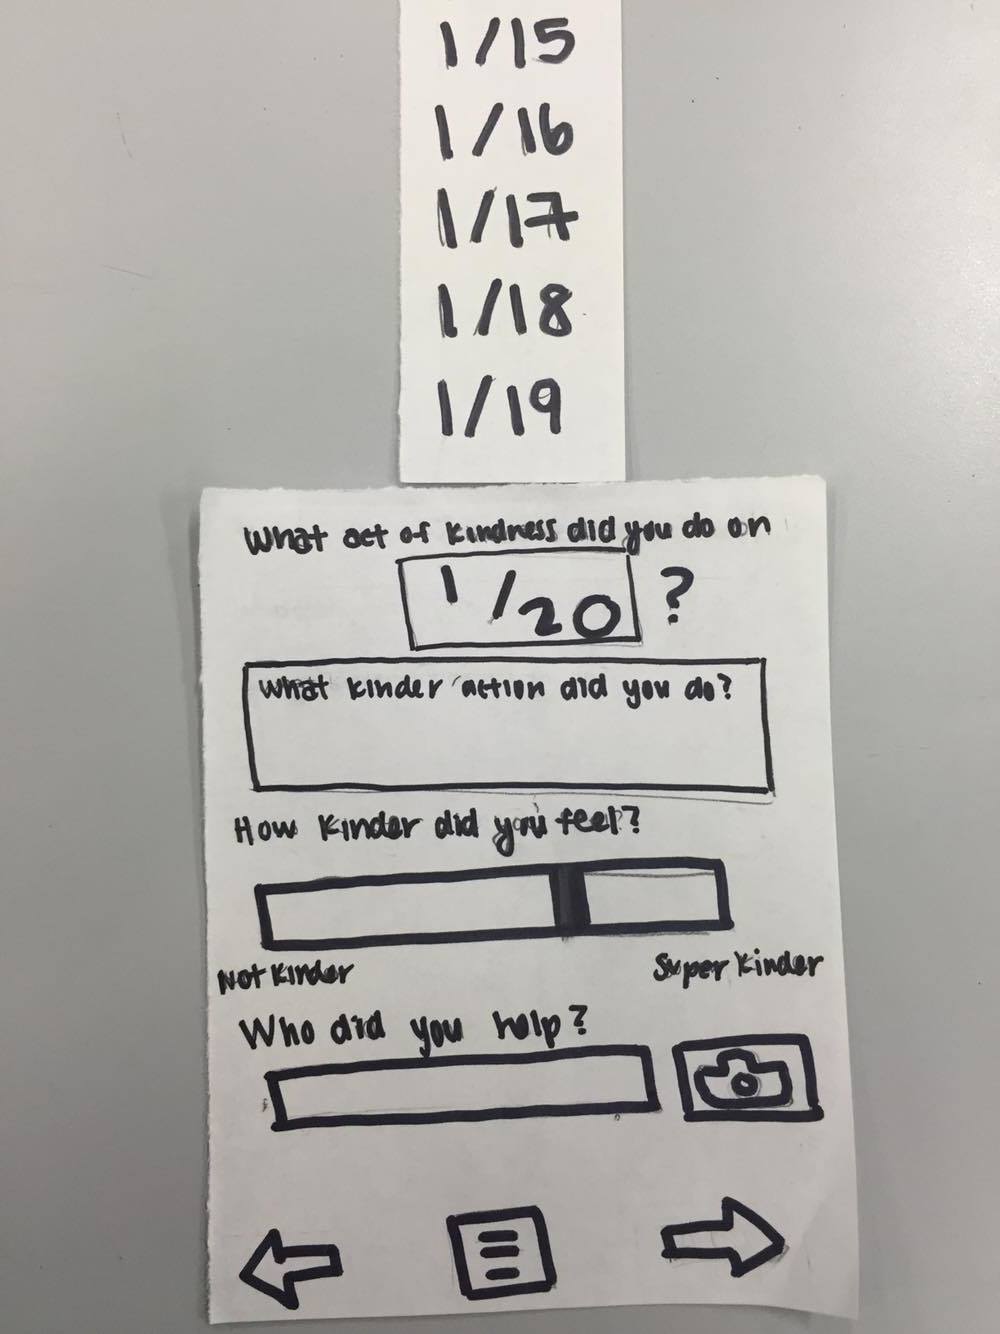 1/15
1/16
1/17
1/18
1/19
What act of kindness did you do on
1/20 ?
What kinder action did you do?
How kinder did you feel?
Not kinder Super kinder
Who did you help?